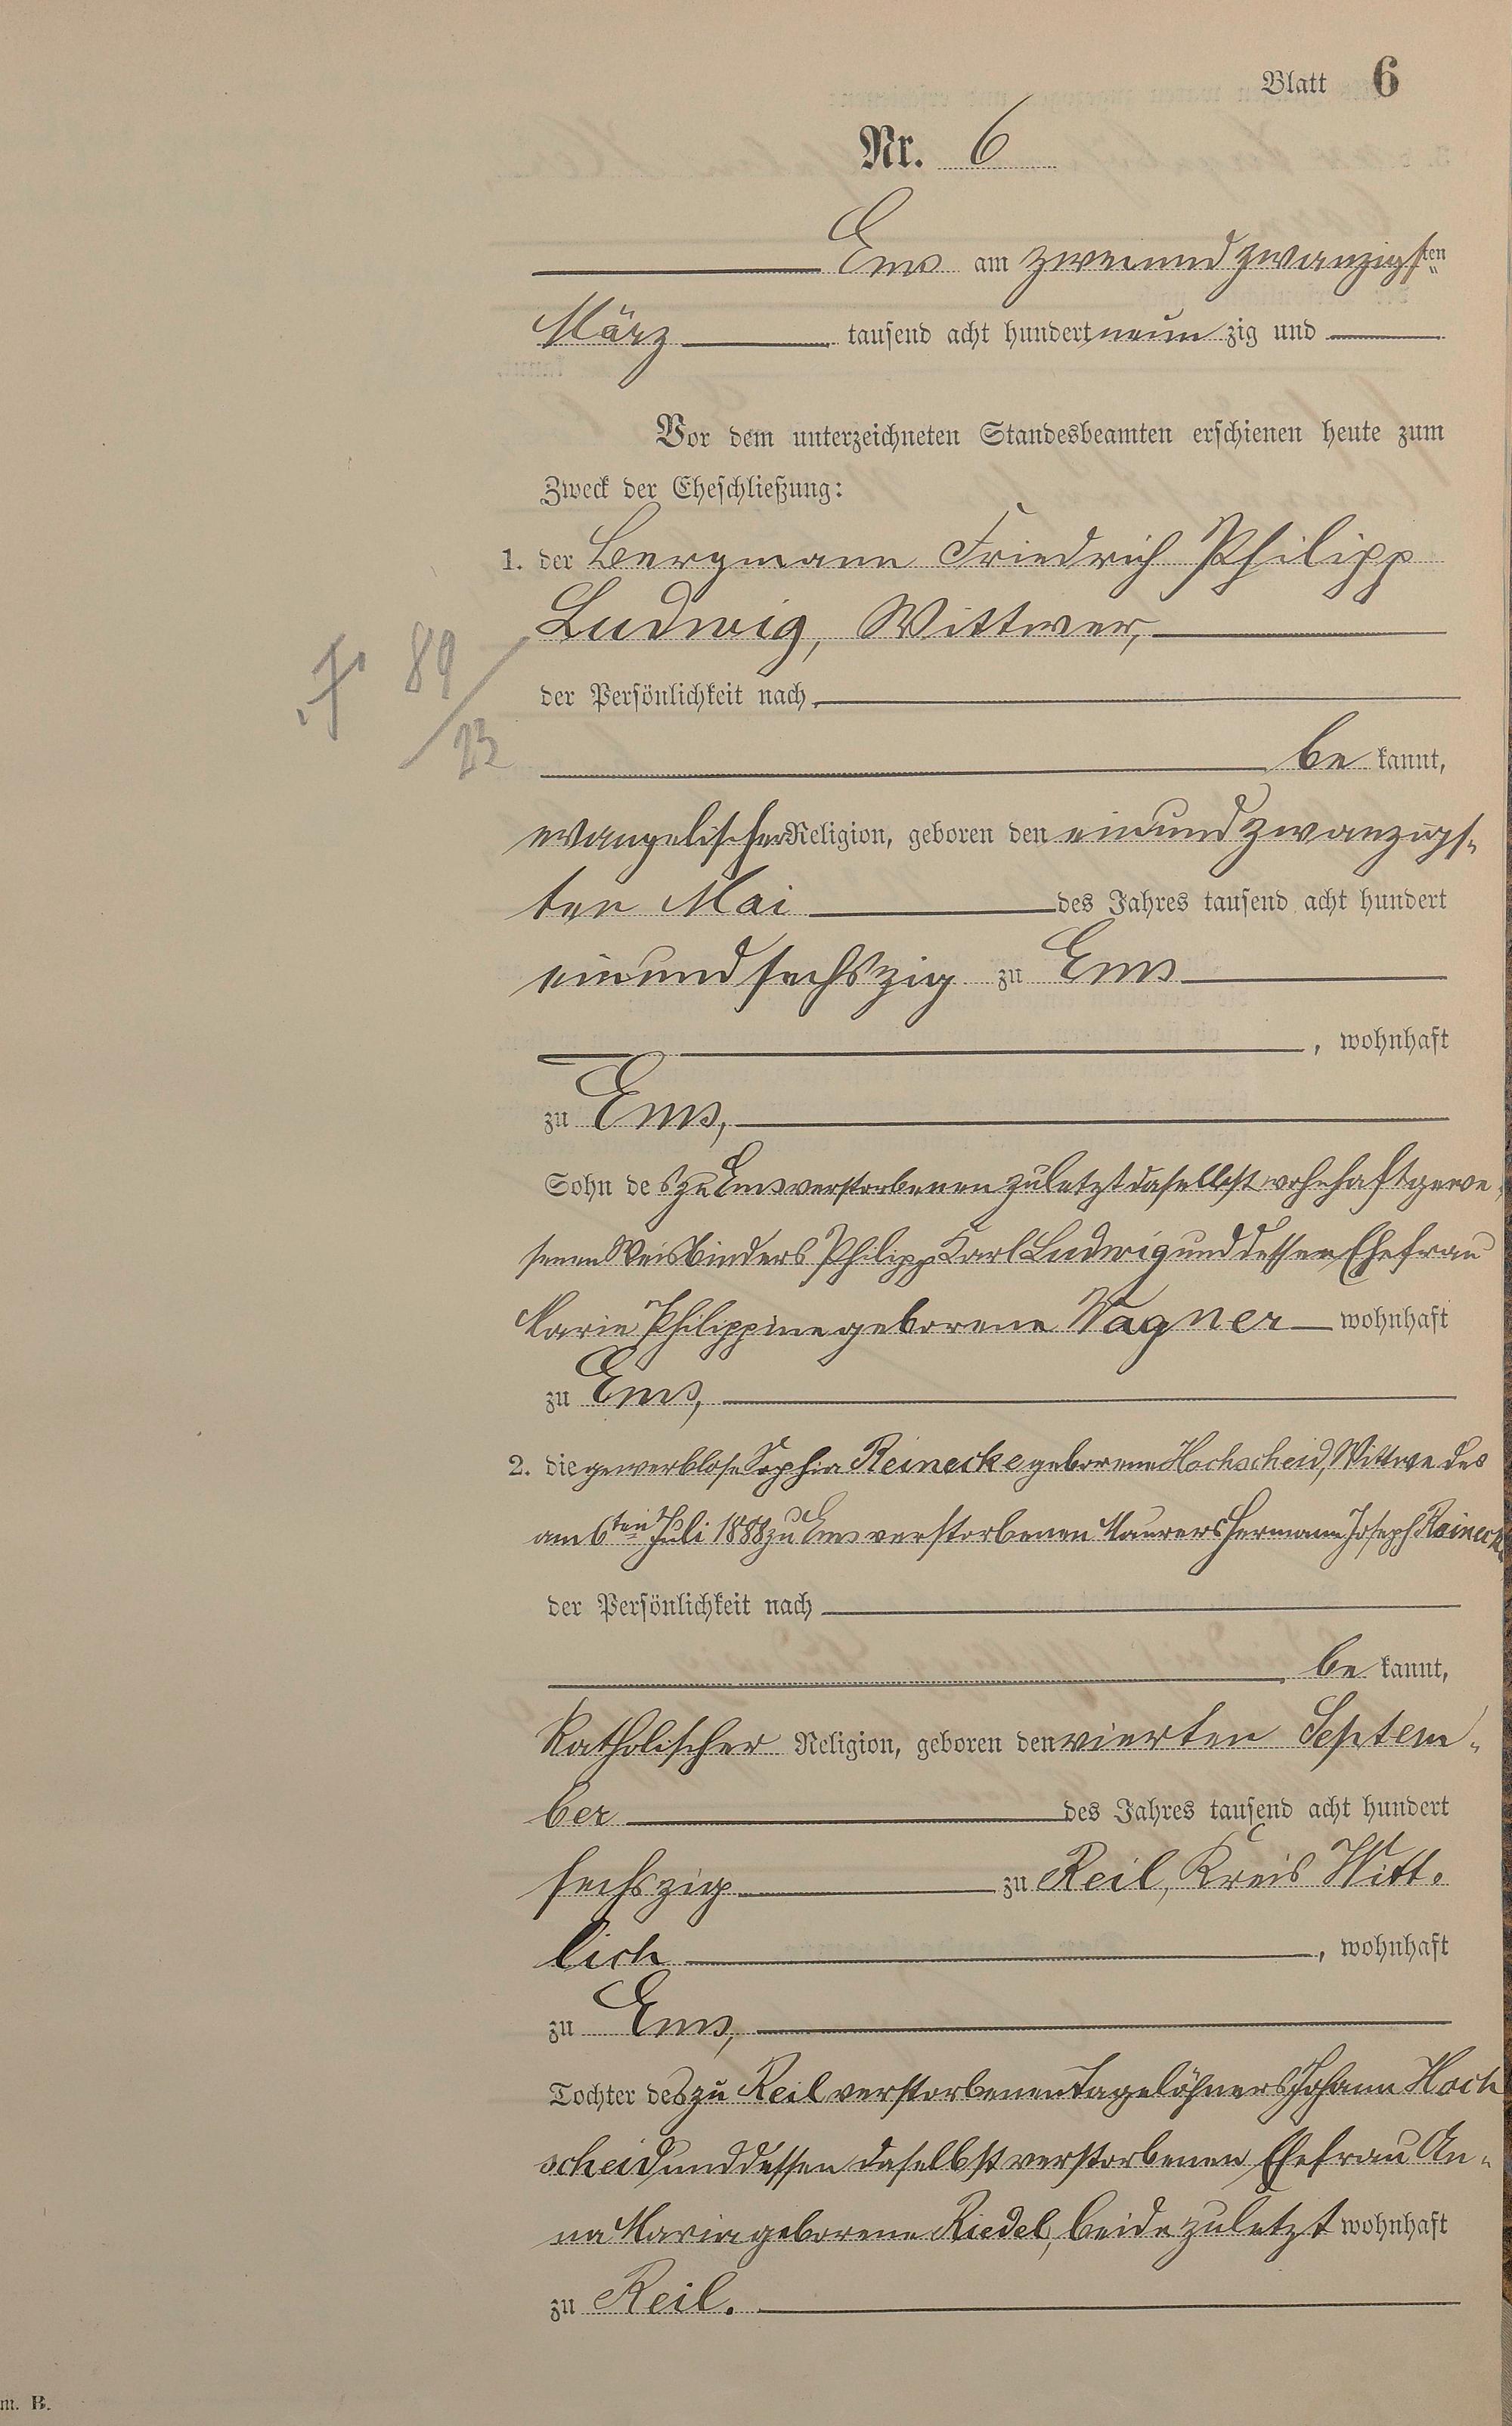 Blatt 6
Nr. 6
Ems am zweiundzwanzigsten
März tausend acht hundert neun zig und
Vor dem unterzeichneten Standesbeamten erschienen heute zum
Zweck der Eheschließung:
1. der Bergmann Friedrich Philipp
Ludwig, Wittwer,
89
/
23
der Persönlichkeit nach
be kannt,
evangelischer Religion, geboren den einundzwanzigs-
ten Mai des Jahres tausend acht hundert
einundsechszig zu Ems
, wohnhaft
zu Ems,
Sohn des zu Ems verstorbenen zuletzt daselbst wohnhaft gewe-
senen Weisbinders Philipp Karl Ludwig und dessen Ehefrau
Marie Philippine geborene Wagner wohnhaft
zu Ems,
2. die gewerblose Sophia Reinecke geborene Hochscheid, Wittwe des
am 6ten Juli 1888 zu Ems verstorbenen Maurers Hermann Joseph Reinecke
der Persönlichkeit nach
be kannt,
katholischer Religion, geboren den vierten Septem-
ber des Jahres tausend acht hundert
sechszig zu Reil, Kreis Witt-
lich , wohnhaft
zu Ems,
Tochter des zu Reil verstorbenen Tagelöhners Johann Hoch
scheid und dessen daselbst verstorbenen Ehefrau An-
na Maria geborene Riedel, beide zuletzt wohnhaft
zu Reil.
m. B.